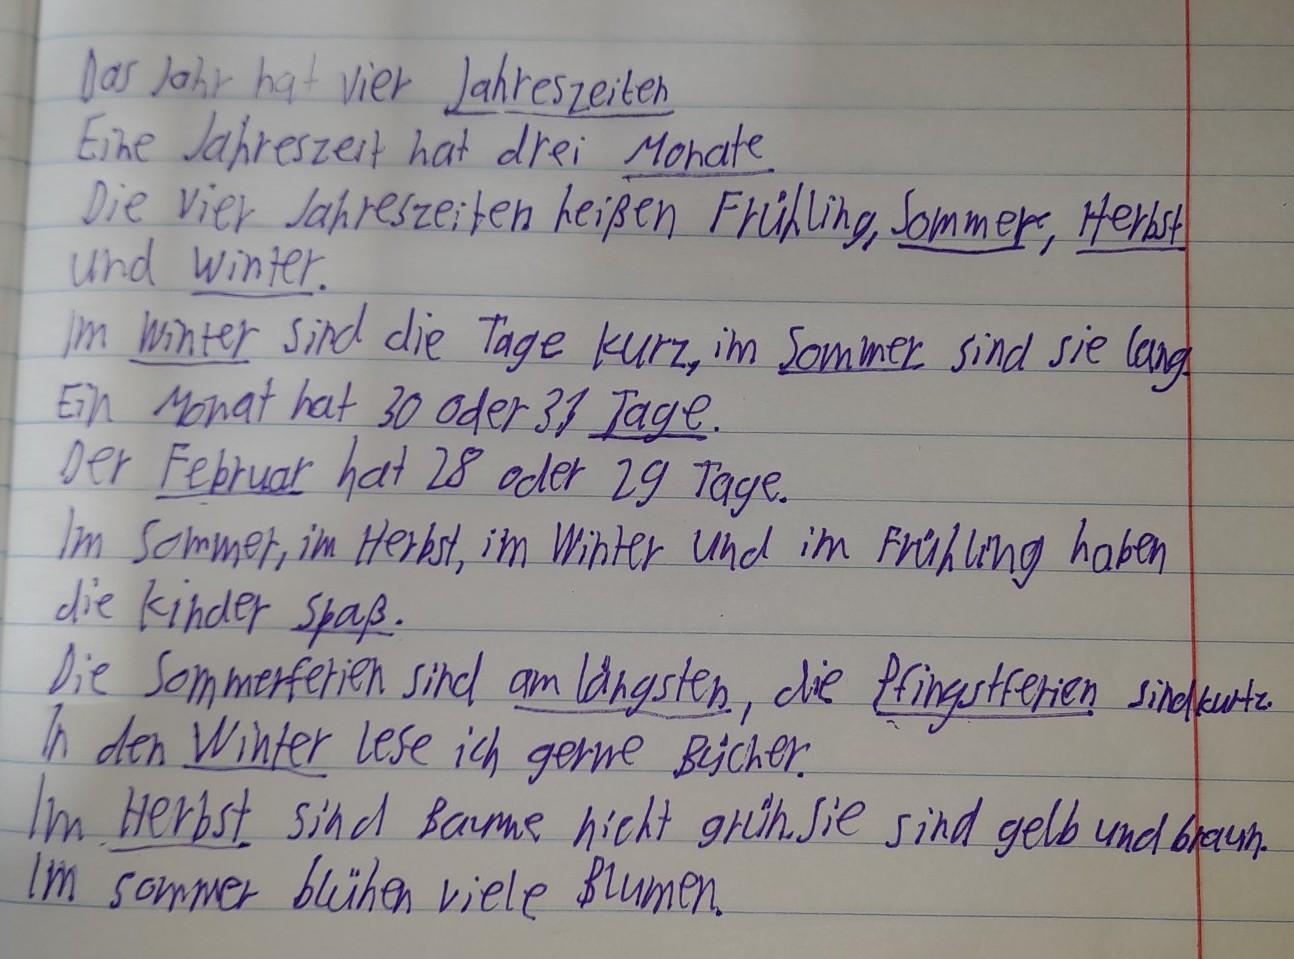 Das Jahr hat vier Jahreszeiten
Eine Jahreszeit hat drei Monate.
Die vier Jahreszeiten heißen Frühling, Sommer, Herbst
und Winter.
Im Winter sind die Tage kurz, im Sommer sind sie lang.
Ein Monat hat 30 oder 31 Tage.
Der Februar hat 28 oder 29 Tage.
Im Sommer, im Herbst, im Winter und im Frühling haben
die Kinder Spaß.
Die Sommerferien sind am längsten, die Pfingstferien sind kurtz.
In den Winter lese ich gerne Bücher.
Im Herbst sind Baume nicht grün. Sie sind gelb und braun.
Im sommer blühen viele Blumen.